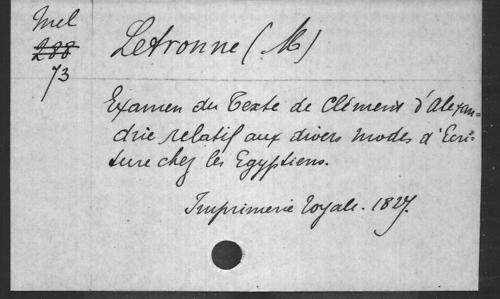 Mel
288
73
Letronne (M)
Examen du Texte de Clément d'Alexan=
drie relatif aux divers modes d'Ecri=
ture chez les Egyptiens.
Imprimerie royale. 1827.